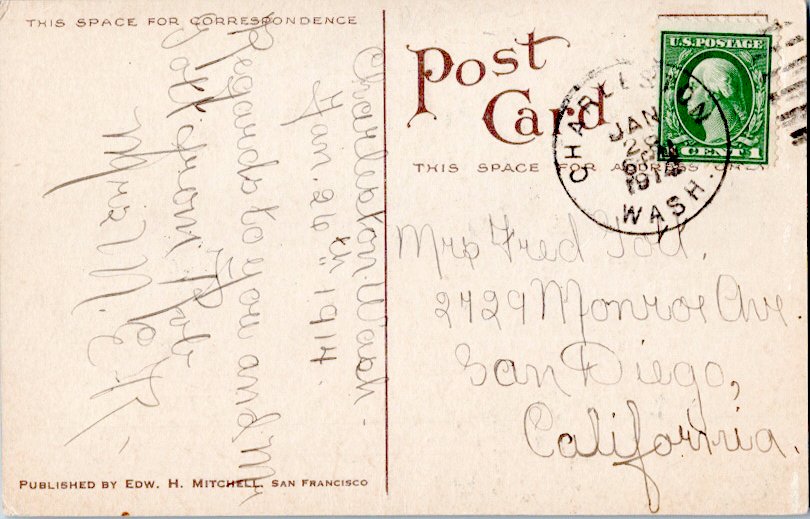 THIS SPACE FOR CORRESPONDENCE
Charleston. Wash.
Jan. 26 th 1914.
Regards to you and Mr
from Rob
Mrs M. E. R
PUBLISHED BY EDW. H. MITCHELL, SAN FRANCISCO
Post
Card
THIS SPACE FOR ADDRESS ONLY
U.S. POSTAGE
1 CENT 1
CHARLESTON
JAN
28
1914
WASH.
Mrs Fred
2729 Monroe Ave.
San Diego,
California.